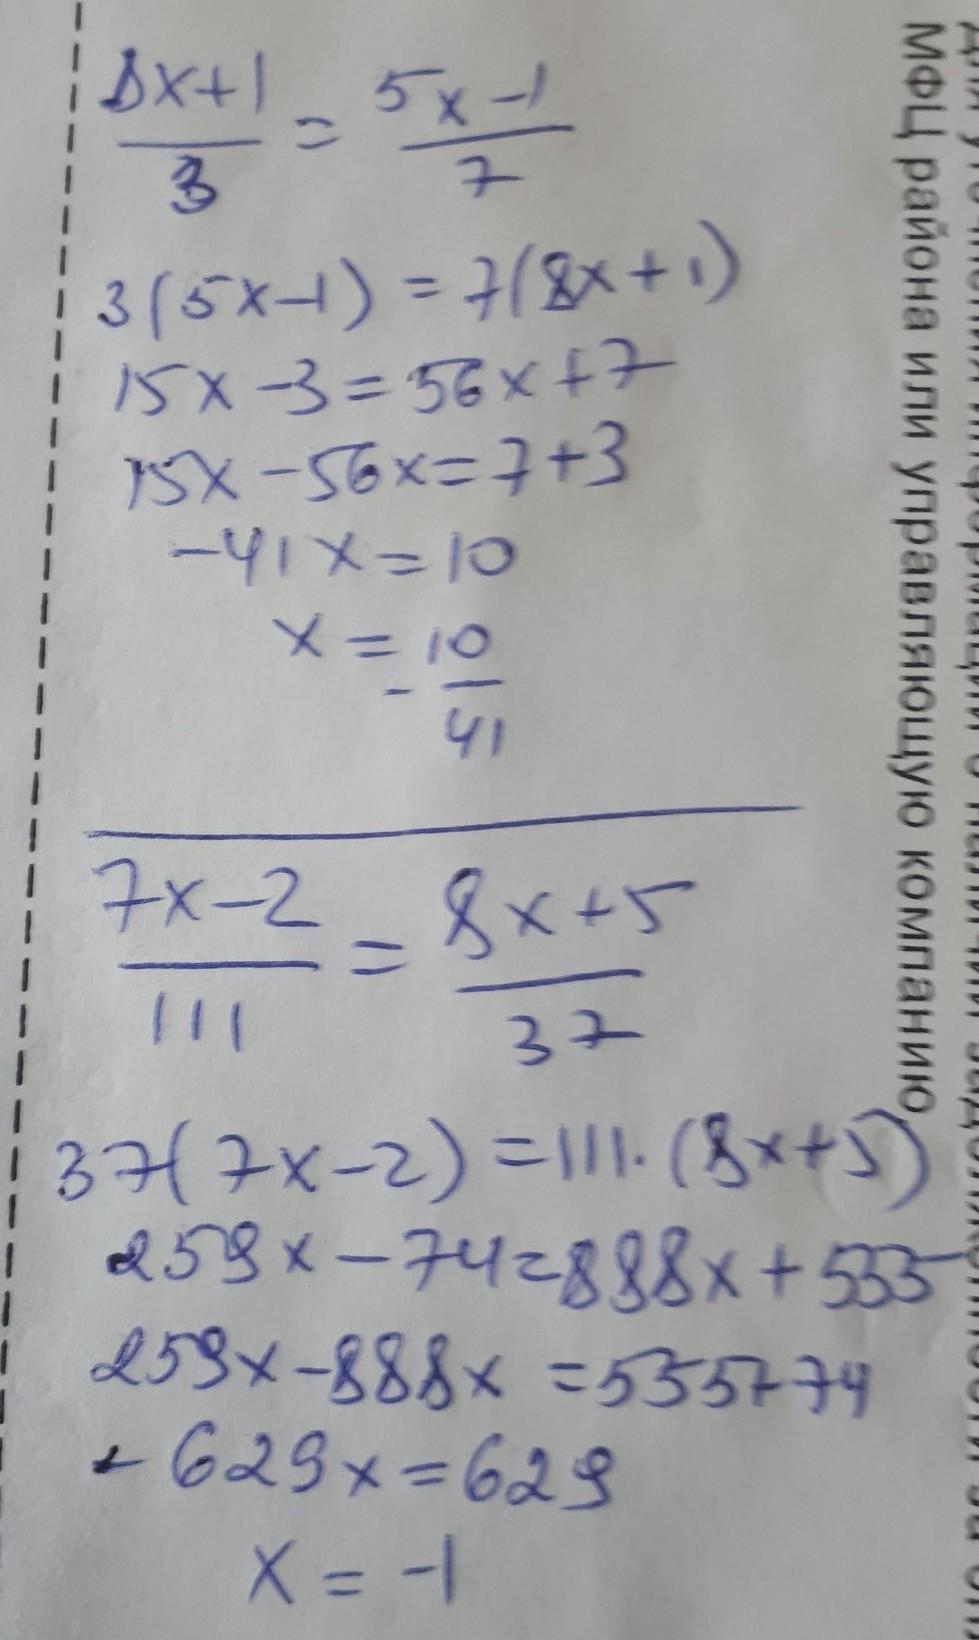 8x+1 = 5x-1
3 7
3(5x-1) = 7(8x+1)
15x-3=56x+7
15x-56x=7+3
-41x=10
x = - 10
41
7x-2 = 8x+5
111 37
37(7x-2) =111·(8x+5)
259x-74=888x+555
259x-888x =555+74
-629x=629
x = -1
МФЦ района или управляющую компанию